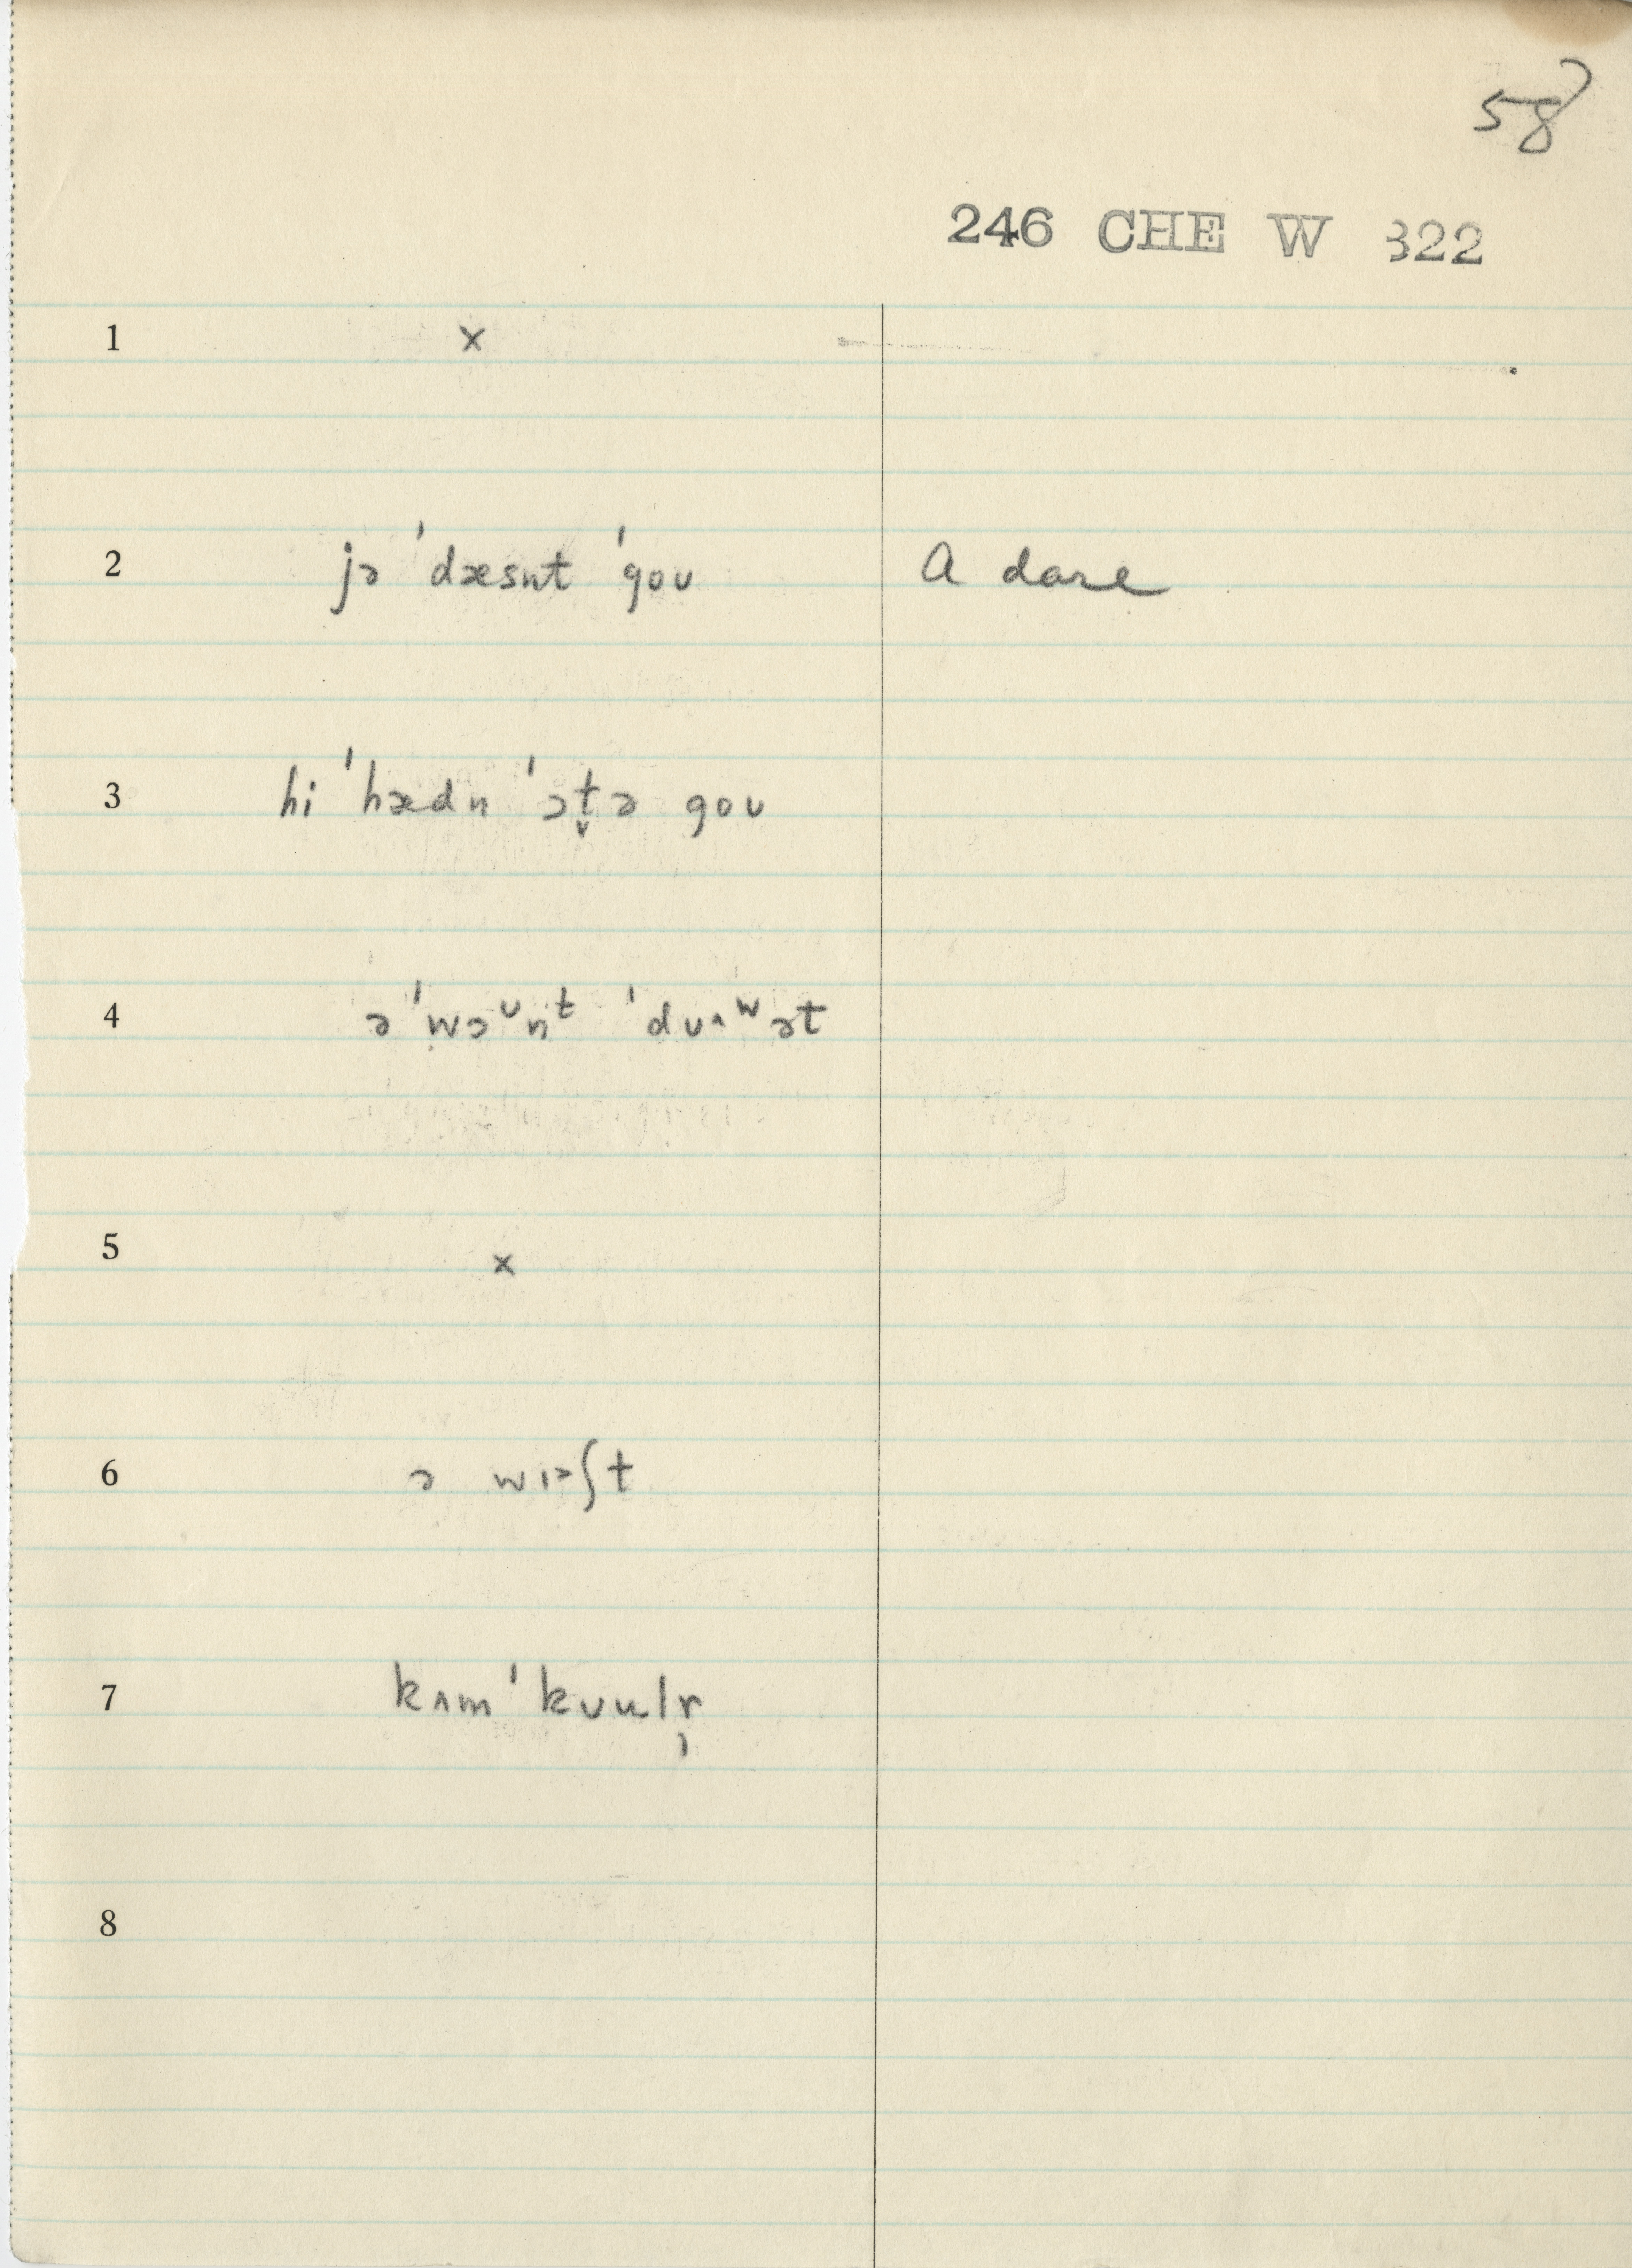 58
246 CHE W 322
1 x
2 jə ˈdæsnt ˈgoʊ A dare
3 hi ˈhædn ˈət̬ə goʊ
4 ə ˈwəᶷnᵗ ˈdu˄ʷət
5 x
6 ə wɪ˃ʃt
7 kʌm ˈkʊulr̩
8